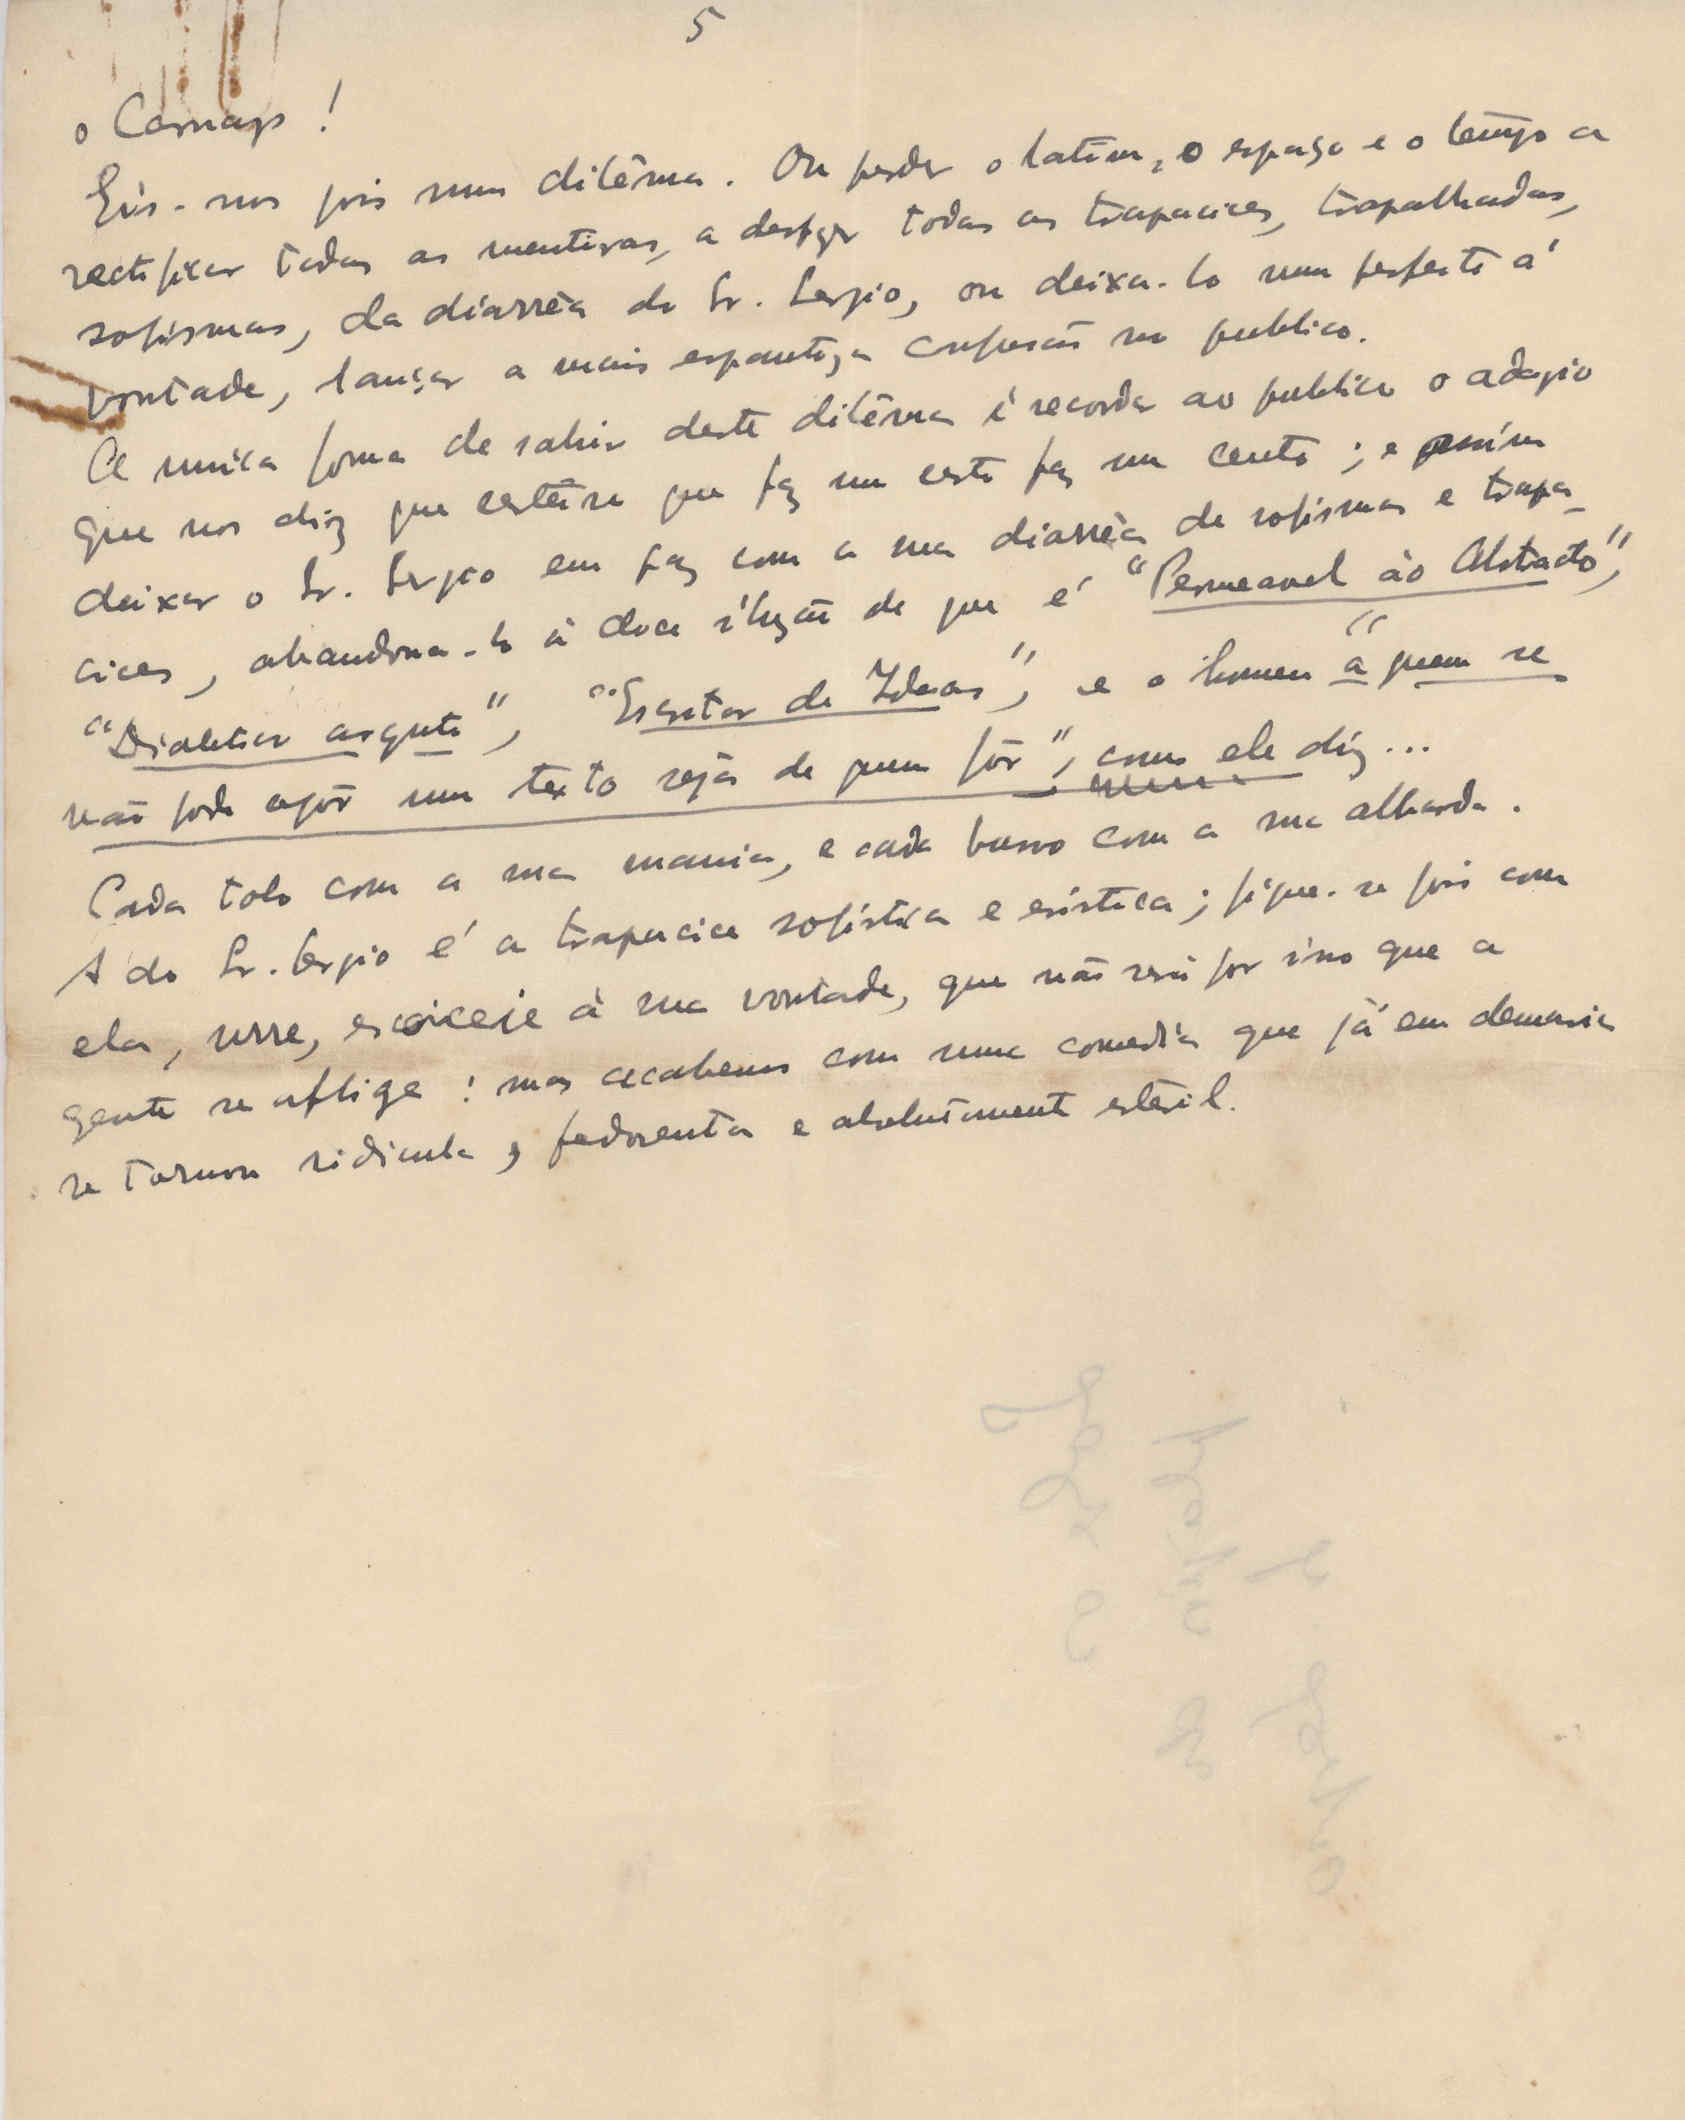 5
o Carnap !
Eis-nos pois num dilêma. Ou perder o latim, o espaço e o tempo a
rectificar todas as mentiras, a desfazer todas as trapacices, trapalhadas,
sofismas, da diarrêa do Sr. Sergio, ou deixa-lo num perfeito á
vontade, lançar a mais espantoza confusão no publico.
A unica forma de sahir deste dilêma é recordar ao publico o adagio
que nos diz que cesteiro que faz um cesto faz um cento ; e assim
deixar o Sr. Sergio em paz com a sua diarrêa de sofismas e trapa-
cices, abandona-lo á doce iluzão de que é "Permeavel ao Abstracto",
"Dialetico arguto", "Escritor de Ideas", e o homem "a quem se
não pode opôr um texto seja de quem fôr", como ele diz...
Cada tolo com a sua mania, e cada burro com a sua albarda.
A do Sr. Sergio é a trapacice sofistica e eristica ; fique-se pois com
ela, urre, escoiceie á sua vontade, que não será por isso que a
gente se aflige : mas acabemos com uma comedia que já em demasia
se tornou ridicula, fedorenta e absolutamente estéril.